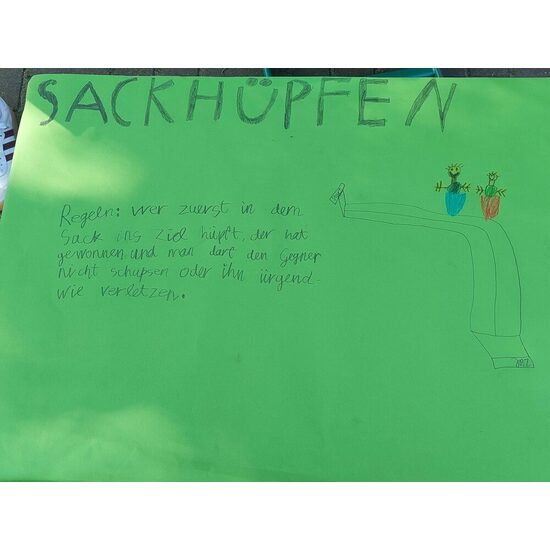 SACKHÜPFEN
Regeln: Wer zuerst in dem
Sack ins Ziel hüpft, der hat
gewonnen und man darf den Gegner
nicht schupsen oder ihn irgend-
wie verletzen.